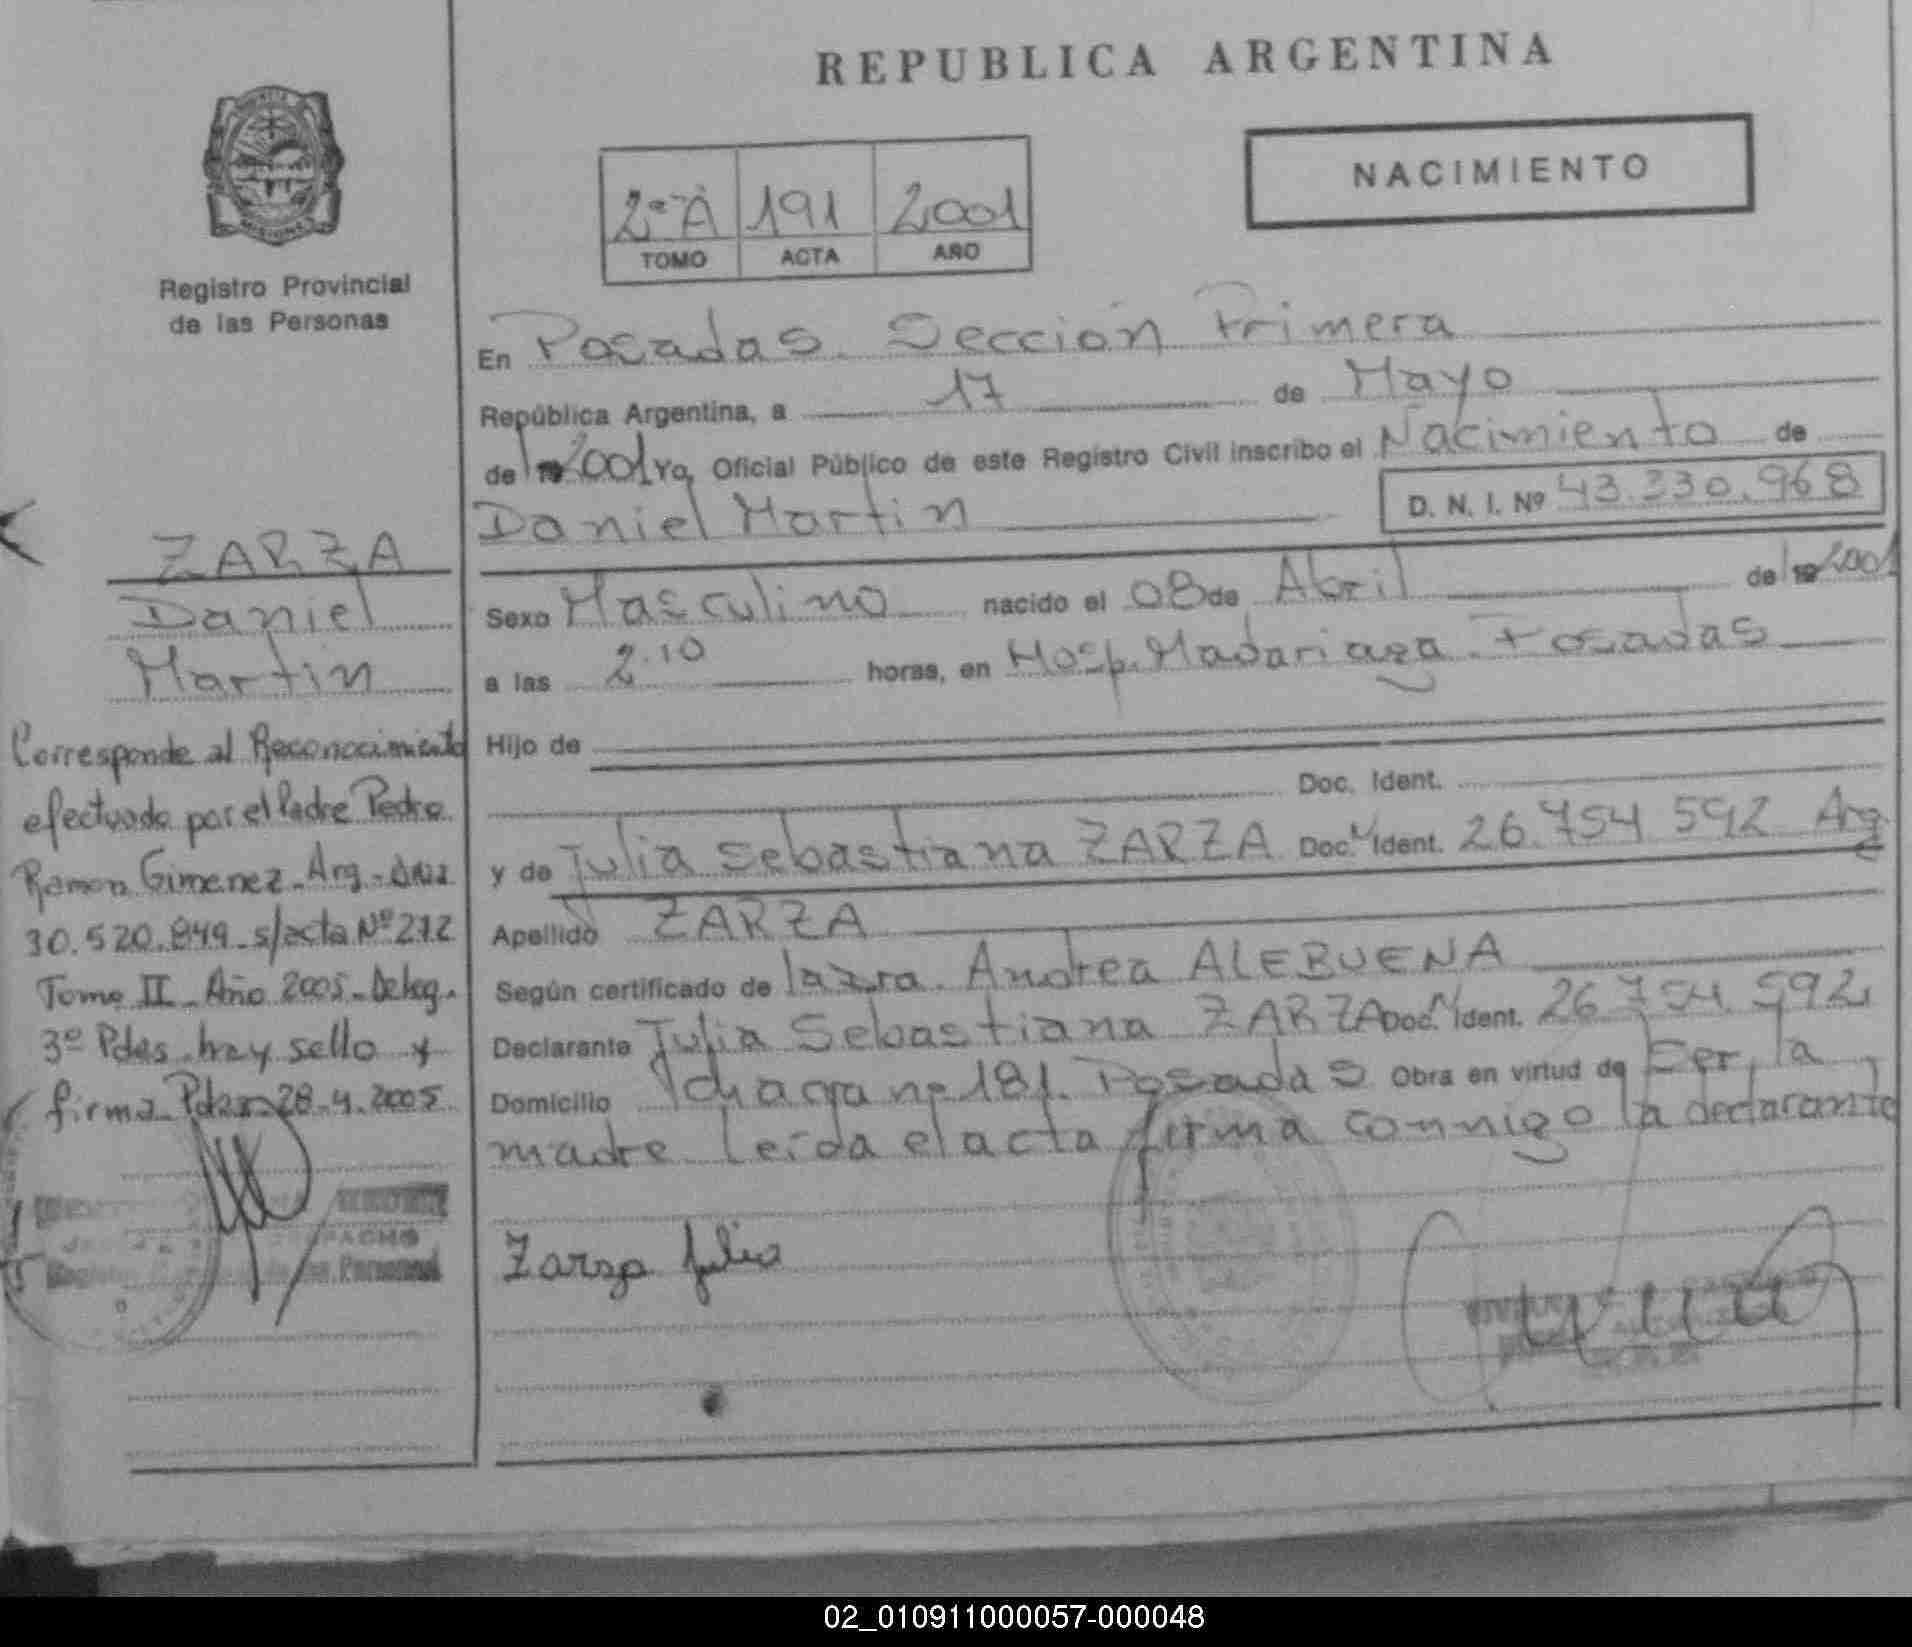 REPUBLICA ARGENTINA
NACIMIENTO
2º A 191 2001
TOMO ACTA AÑO
Registro Provincial
de las Personas
En Posadas. Sección Primera
República Argentina, a 17 de Mayo
de 2001 yo, Oficial Público de este Registro Civil inscribo el Nacimiento de
Daniel Martin D. N. I. Nº 43.330.968
Sexo Masculino nacido el 08 de Abril de 2001
a las 2.10 horas, en Hosp. Madariaga. Posadas
Hijo de
Doc. Ident.
y de Julia Sebastiana ZARZA Doc. Ident. 26.754.592 Arg
Apellido ZARZA
Según certificado de la Andrea ALEBUENA
Declarante Julia Sebastiana ZARZA Doc. Ident. 26.754.592
Domicilio chacra nº 181. Posadas Obra en virtud de Ser la
madre Leída el acta firma conmigo la declarante
Zarza Julia
ZARZA
Daniel
Martin
Corresponde al Reconocimiento
efectuado por el Padre Pedro
Ramon Gimenez - Arg -
30.520.849 - s/acta Nº 212
Tomo II - Año 2005 - Deleg.
3º Pdas - hay sello y
firma - Pdas - 28-4-2005
02_010911000057-000048